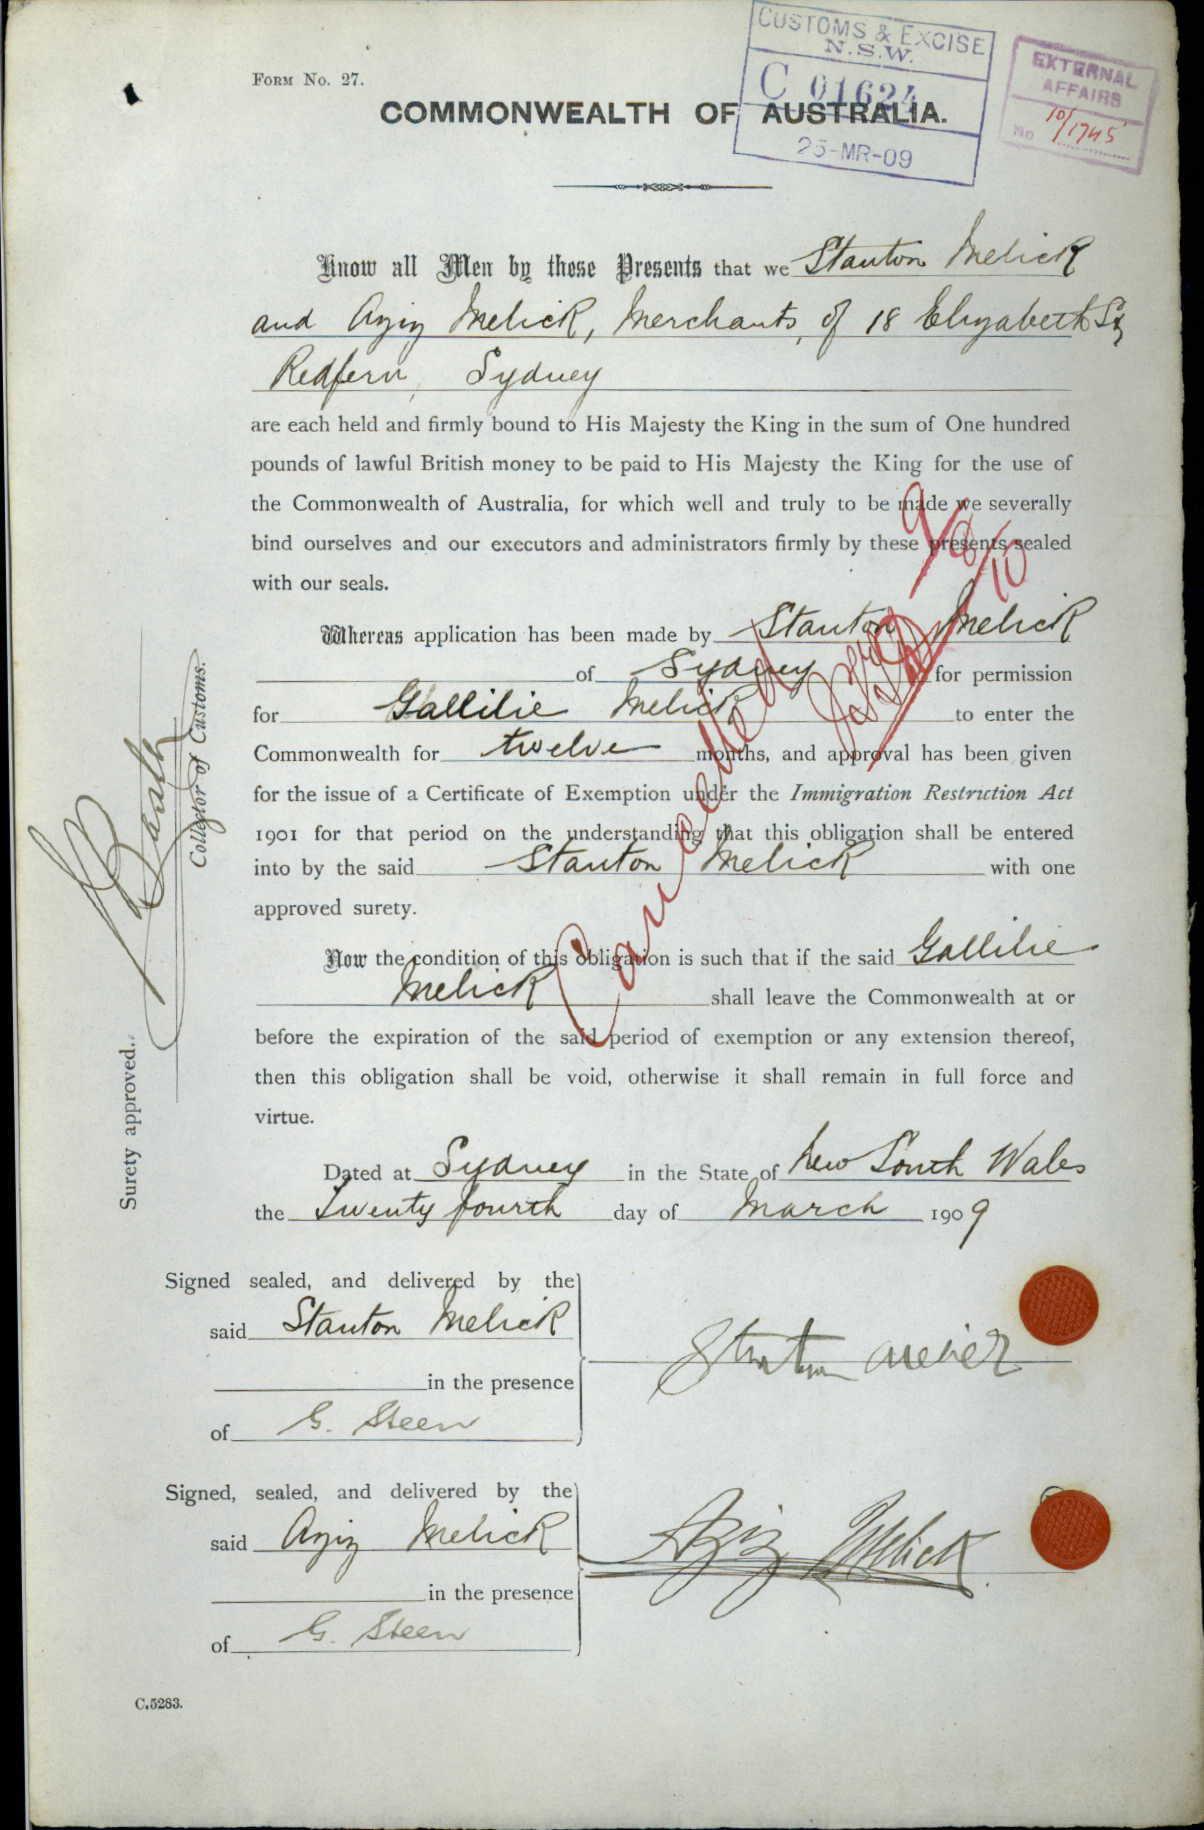 CUSTOMS & EXCISE
N.S.W.
C 01624
25-MR-09
EXTERNAL
AFFAIRS
No 10/1745
FORM No. 27.
COMMONWEALTH OF AUSTRALIA.
Know all Men by these Presents that we Stanton Melick
and Aziz Melick, Merchants, of 18 Elizabeth St,
Redfern, Sydney
are each held and firmly bound to His Majesty the King in the sum of One hundred
pounds of lawful British money to be paid to His Majesty the King for the use of
the Commonwealth of Australia, for which well and truly to be made we severally
bind ourselves and our executors and administrators firmly by these presents sealed
with our seals.
Whereas application has been made by Stanton Melick
of Sydney for permission
for Gallilie Melick to enter the
Commonwealth for twelve months, and approval has been given
for the issue of a Certificate of Exemption under the Immigration Restriction Act
1901 for that period on the understanding that this obligation shall be entered
into by the said Stanton Melick with one
approved surety.
Now the condition of this obligation is such that if the said Gallilie
Melick shall leave the Commonwealth at or
before the expiration of the said period of exemption or any extension thereof,
then this obligation shall be void, otherwise it shall remain in full force and
virtue.
Dated at Sydney in the State of New South Wales
the Twenty fourth day of March 1909
Signed sealed, and delivered by the
said Stanton Melick
in the presence
of G. Steen
Stanton Melick
Signed, sealed, and delivered by the
said Aziz Melick
in the presence
of G. Steen
Aziz Melick
C.5283.
Surety approved.
Collector of Customs.
Cancelled
9/8/10